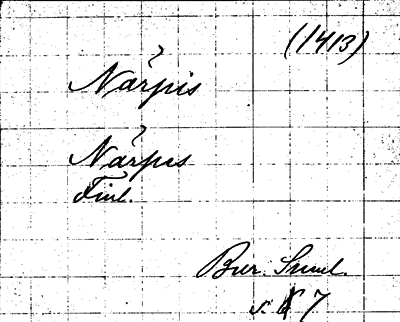 (1413)
Närpis
Närpes
Finl.
Bur. Suml.
s. 7